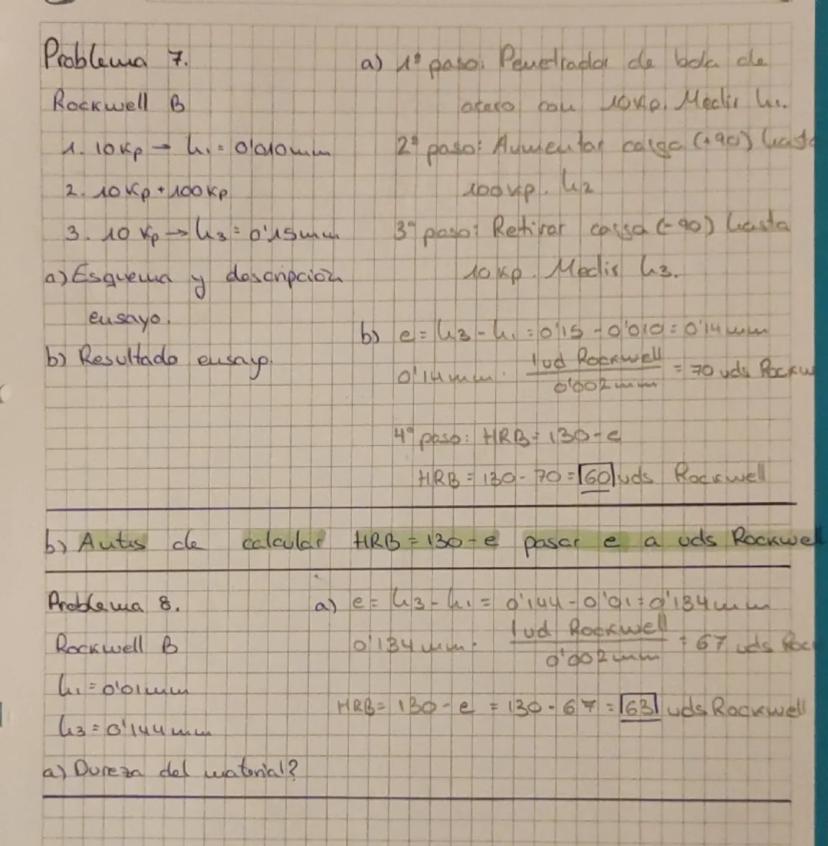 Problema 7.
Rockwell B
1. 10Kp → h₁ = 0'010mm
2. 10 Kp + 100 Kp
3. 10 Kp → h3 = 0'15mm
a) Esquema y descripción
ensayo.
b) Resultado ensayo.
a) 1º paso: Penetrador de bola de
acero con 10Kp. Medir h₁.
2º paso: Aumentar carga (+90) hasta
100Kp. h2
3º paso: Retirar carga (-90) hasta
10Kp. Medir h3.
b) e = h3 - h₁ = 0'15 - 0'010 = 0'14mm
0'14mm · 1ud Rockwell / 0'002mm = 70 uds Rockw
4º paso: HRB = 130 - e
HRB = 130 - 70 = 60 uds Rockwell
b) Antes de calcular HRB = 130 - e pasar e a uds Rockwel
Problema 8.
Rockwell B
h₁ = 0'01mm
h3 = 0'144mm
a) Dureza del material?
a) e = h3 - h₁ = 0'144 - 0'01 = 0'134mm
0'134mm · 1ud Rockwell / 0'002mm = 67 uds Roc
HRB = 130 - e = 130 - 67 = 63 uds Rockwell